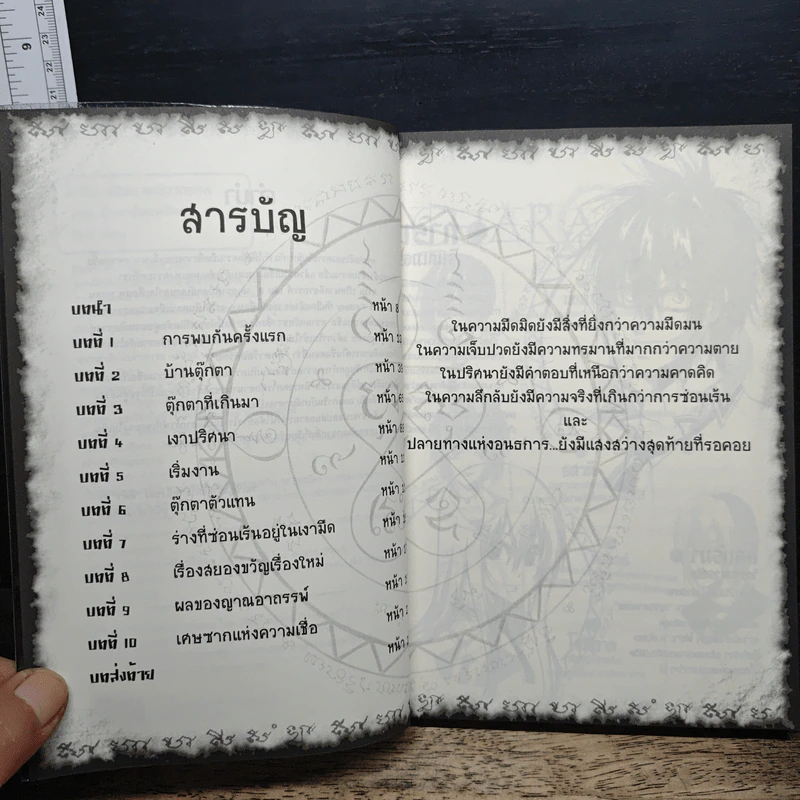 สารบัญ
บทนำ หน้า 8
บทที่ 1 การพบกันครั้งแรก หน้า
บทที่ 2 บ้านตุ๊กตา หน้า
บทที่ 3 ตุ๊กตาที่เกินมา หน้า
บทที่ 4 เงาปริศนา หน้า
บทที่ 5 เริ่มงาน หน้า
บทที่ 6 ตุ๊กตาตัวแทน หน้า
บทที่ 7 ร่างที่ซ่อนเร้นอยู่ในเงามืด หน้า
บทที่ 8 เรื่องสยองขวัญเรื่องใหม่ หน้า
บทที่ 9 ผลของญาณอาถรรพ์ หน้า
บทที่ 10 เศษซากแห่งความเชื่อ หน้า
บทส่งท้าย
ในความมืดมิดยังมีสิ่งที่ยิ่งกว่าความมืดมน
ในความเจ็บปวดยังมีความทรมานที่มากกว่าความตาย
ในปริศนายังมีคำตอบที่เหนือกว่าความคาดคิด
ในความลึกลับยังมีความจริงที่เกินกว่าการซ่อนเร้น
และ
ปลายทางแห่งอนธการ...ยังมีแสงสว่างสุดท้ายที่รอคอย